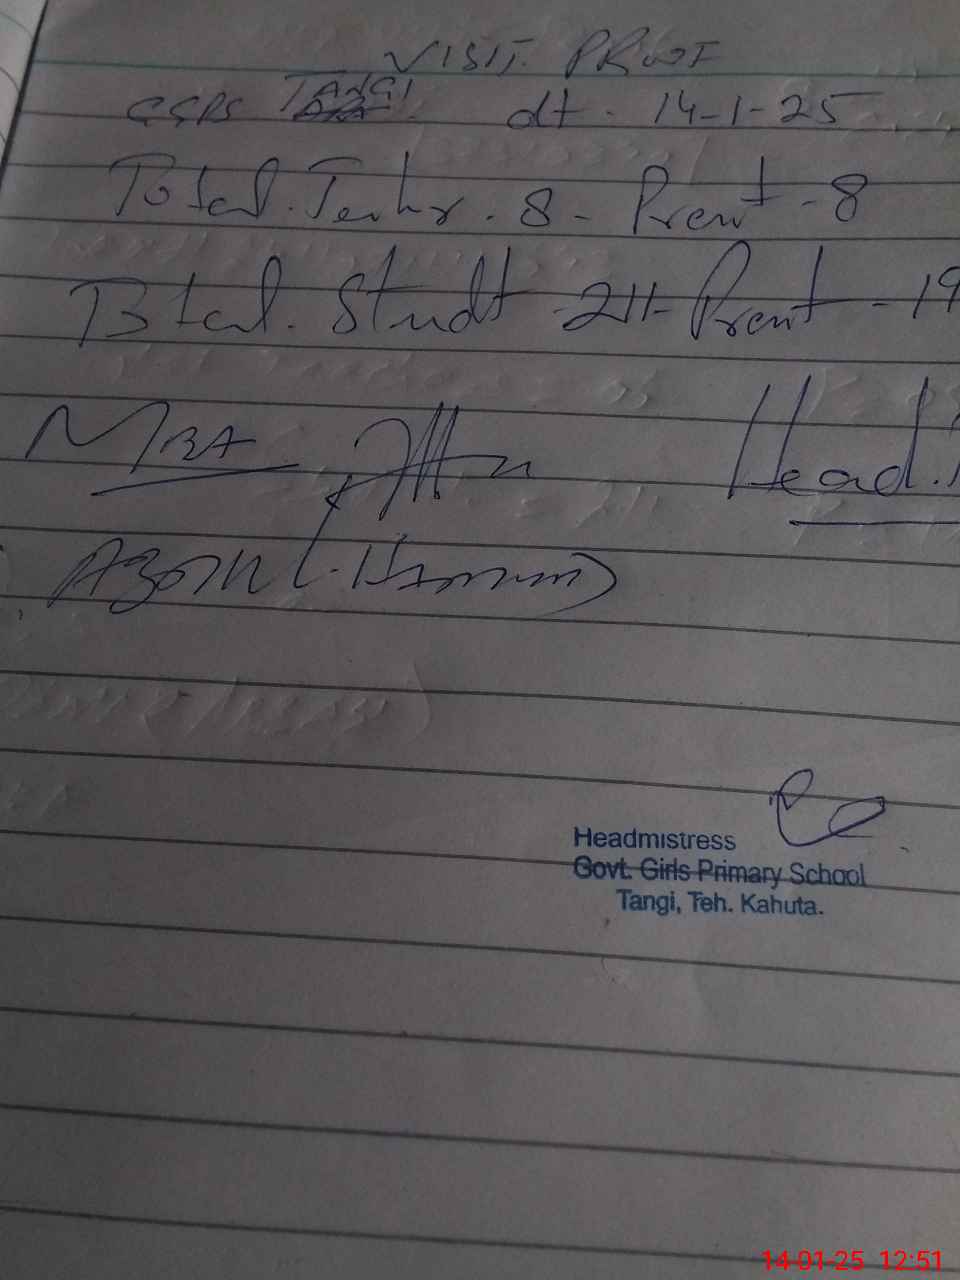 VISIT. PROOF
GGPS TANGI. dt. 14-1-25
Total. Techr. 8 - Prent - 8
Total. Studt - 211 - Prent - 19
MEA
Head.
Headmistress
Govt. Girls Primary School
Tangi, Teh. Kahuta.
14-01-25 12:51